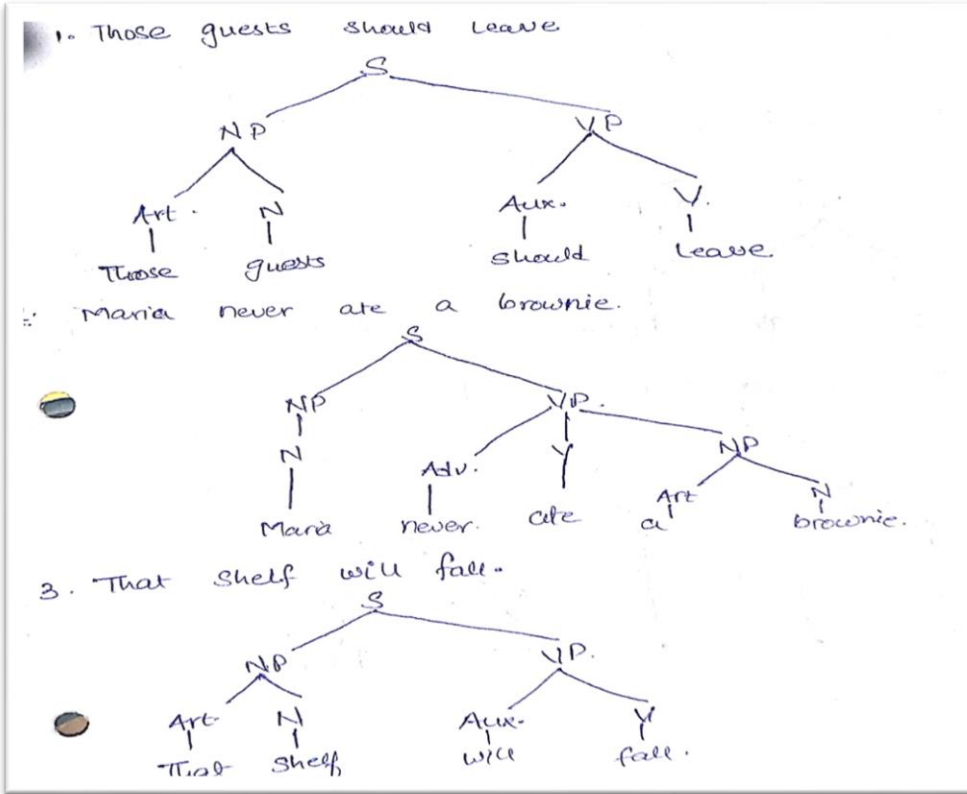 1. Those guests should leave
S
NP VP
Art. N Aux. V.
Those guests should leave
2. Maria never ate a brownie.
S
NP VP.
N Adv. V NP
Art N
Maria never. ate a brownie.
3. That shelf will fall.
S
NP VP.
Art. N Aux. V
That shelf will fall.